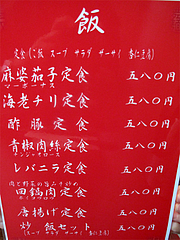 飯
定食(ご飯 スープ サラダ ザーサイ 杏仁豆腐)
麻婆茄子定食 五八〇円
マーボーナス
海老チリ定食 五八〇円
酢豚定食 五八〇円
青椒肉絲定食 五八〇円
チンジャオロース
レバニラ定食 五八〇円
肉と野菜の旨み炒め
回鍋肉定食 五八〇円
ホイコウロウ
唐揚げ定食 五八〇円
炒飯セット 五八〇円
(スープ サラダ ザーサイ 杏仁豆腐)